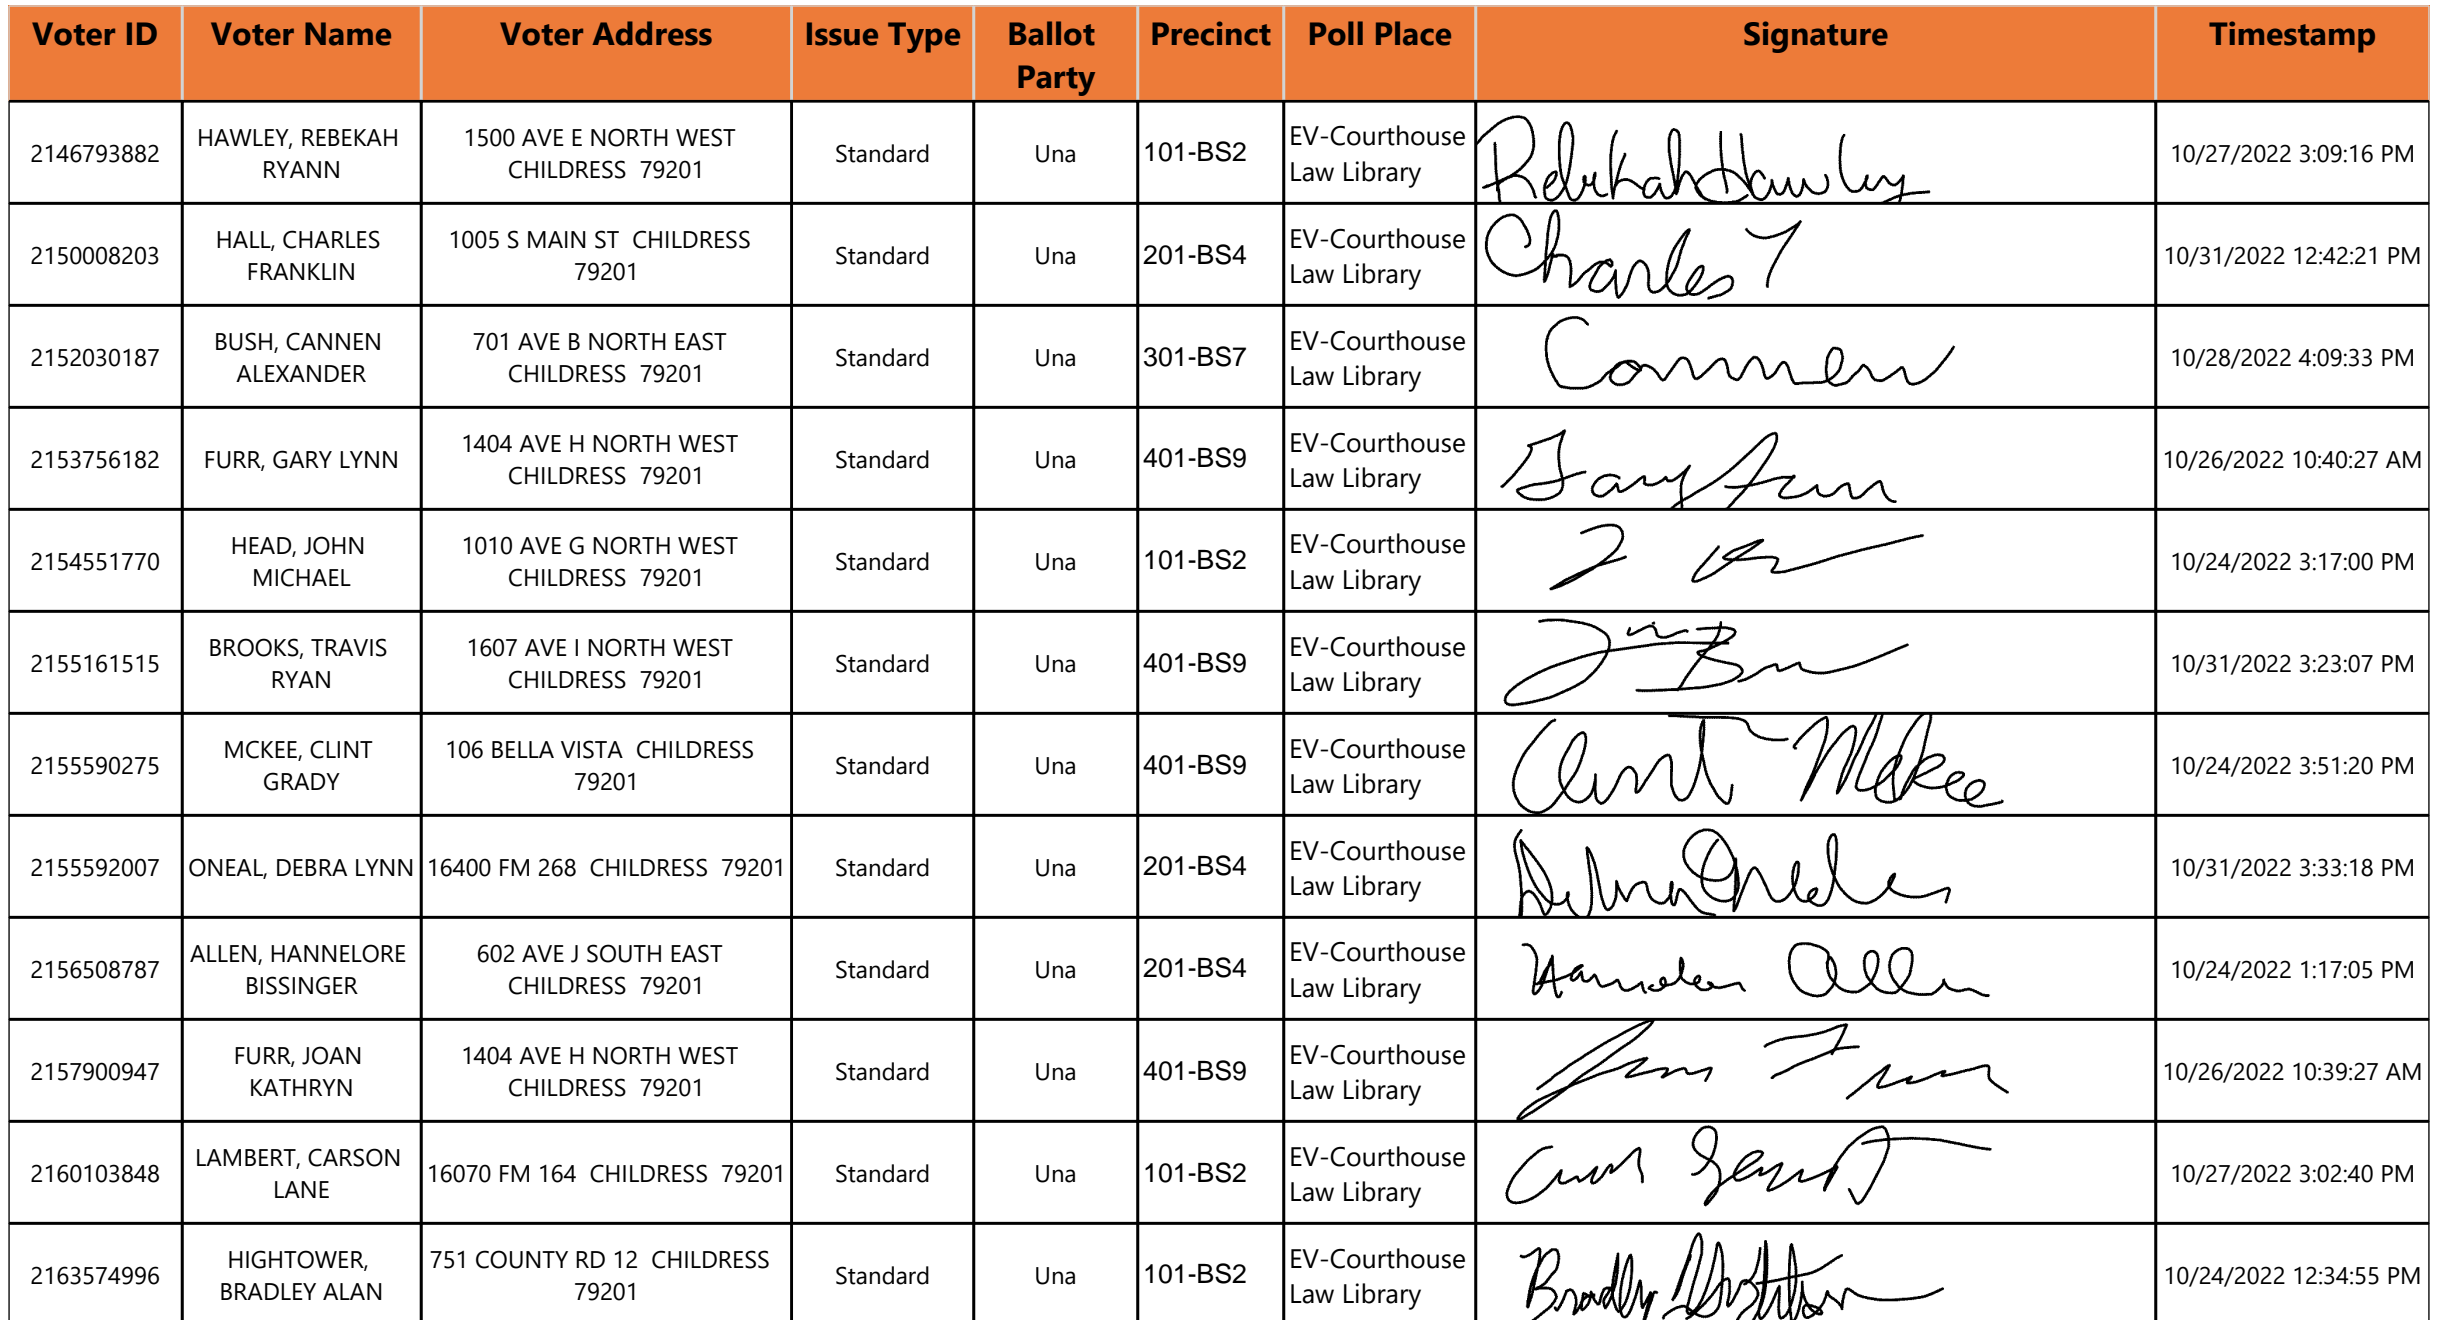 Voter ID Voter Name Voter Address Issue Type Ballot Party Precinct Poll Place Signature Timestamp
2146793882 HAWLEY, REBEKAH RYANN 1500 AVE E NORTH WEST CHILDRESS 79201 Standard Una 101-BS2 EV-Courthouse Law Library Rebekah Hawley 10/27/2022 3:09:16 PM
2150008203 HALL, CHARLES FRANKLIN 1005 S MAIN ST CHILDRESS 79201 Standard Una 201-BS4 EV-Courthouse Law Library Charles 10/31/2022 12:42:21 PM
2152030187 BUSH, CANNEN ALEXANDER 701 AVE B NORTH EAST CHILDRESS 79201 Standard Una 301-BS7 EV-Courthouse Law Library Cannen 10/28/2022 4:09:33 PM
2153756182 FURR, GARY LYNN 1404 AVE H NORTH WEST CHILDRESS 79201 Standard Una 401-BS9 EV-Courthouse Law Library Gary Furr 10/26/2022 10:40:27 AM
2154551770 HEAD, JOHN MICHAEL 1010 AVE G NORTH WEST CHILDRESS 79201 Standard Una 101-BS2 EV-Courthouse Law Library 10/24/2022 3:17:00 PM
2155161515 BROOKS, TRAVIS RYAN 1607 AVE I NORTH WEST CHILDRESS 79201 Standard Una 401-BS9 EV-Courthouse Law Library 10/31/2022 3:23:07 PM
2155590275 MCKEE, CLINT GRADY 106 BELLA VISTA CHILDRESS 79201 Standard Una 401-BS9 EV-Courthouse Law Library Clint McKee 10/24/2022 3:51:20 PM
2155592007 ONEAL, DEBRA LYNN 16400 FM 268 CHILDRESS 79201 Standard Una 201-BS4 EV-Courthouse Law Library 10/31/2022 3:33:18 PM
2156508787 ALLEN, HANNELORE BISSINGER 602 AVE J SOUTH EAST CHILDRESS 79201 Standard Una 201-BS4 EV-Courthouse Law Library Allen 10/24/2022 1:17:05 PM
2157900947 FURR, JOAN KATHRYN 1404 AVE H NORTH WEST CHILDRESS 79201 Standard Una 401-BS9 EV-Courthouse Law Library 10/26/2022 10:39:27 AM
2160103848 LAMBERT, CARSON LANE 16070 FM 164 CHILDRESS 79201 Standard Una 101-BS2 EV-Courthouse Law Library 10/27/2022 3:02:40 PM
2163574996 HIGHTOWER, BRADLEY ALAN 751 COUNTY RD 12 CHILDRESS 79201 Standard Una 101-BS2 EV-Courthouse Law Library Bradley 10/24/2022 12:34:55 PM